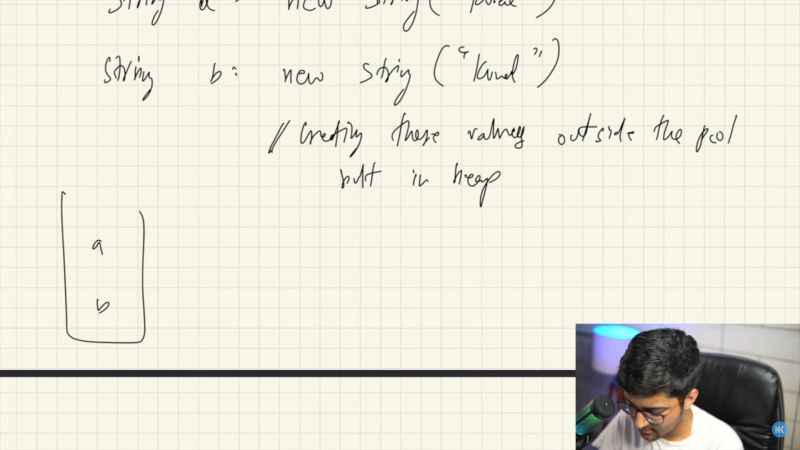 String a = new String("
String b = new String ("Kunal")
// creating these values outside the pool
but in heap
a
b